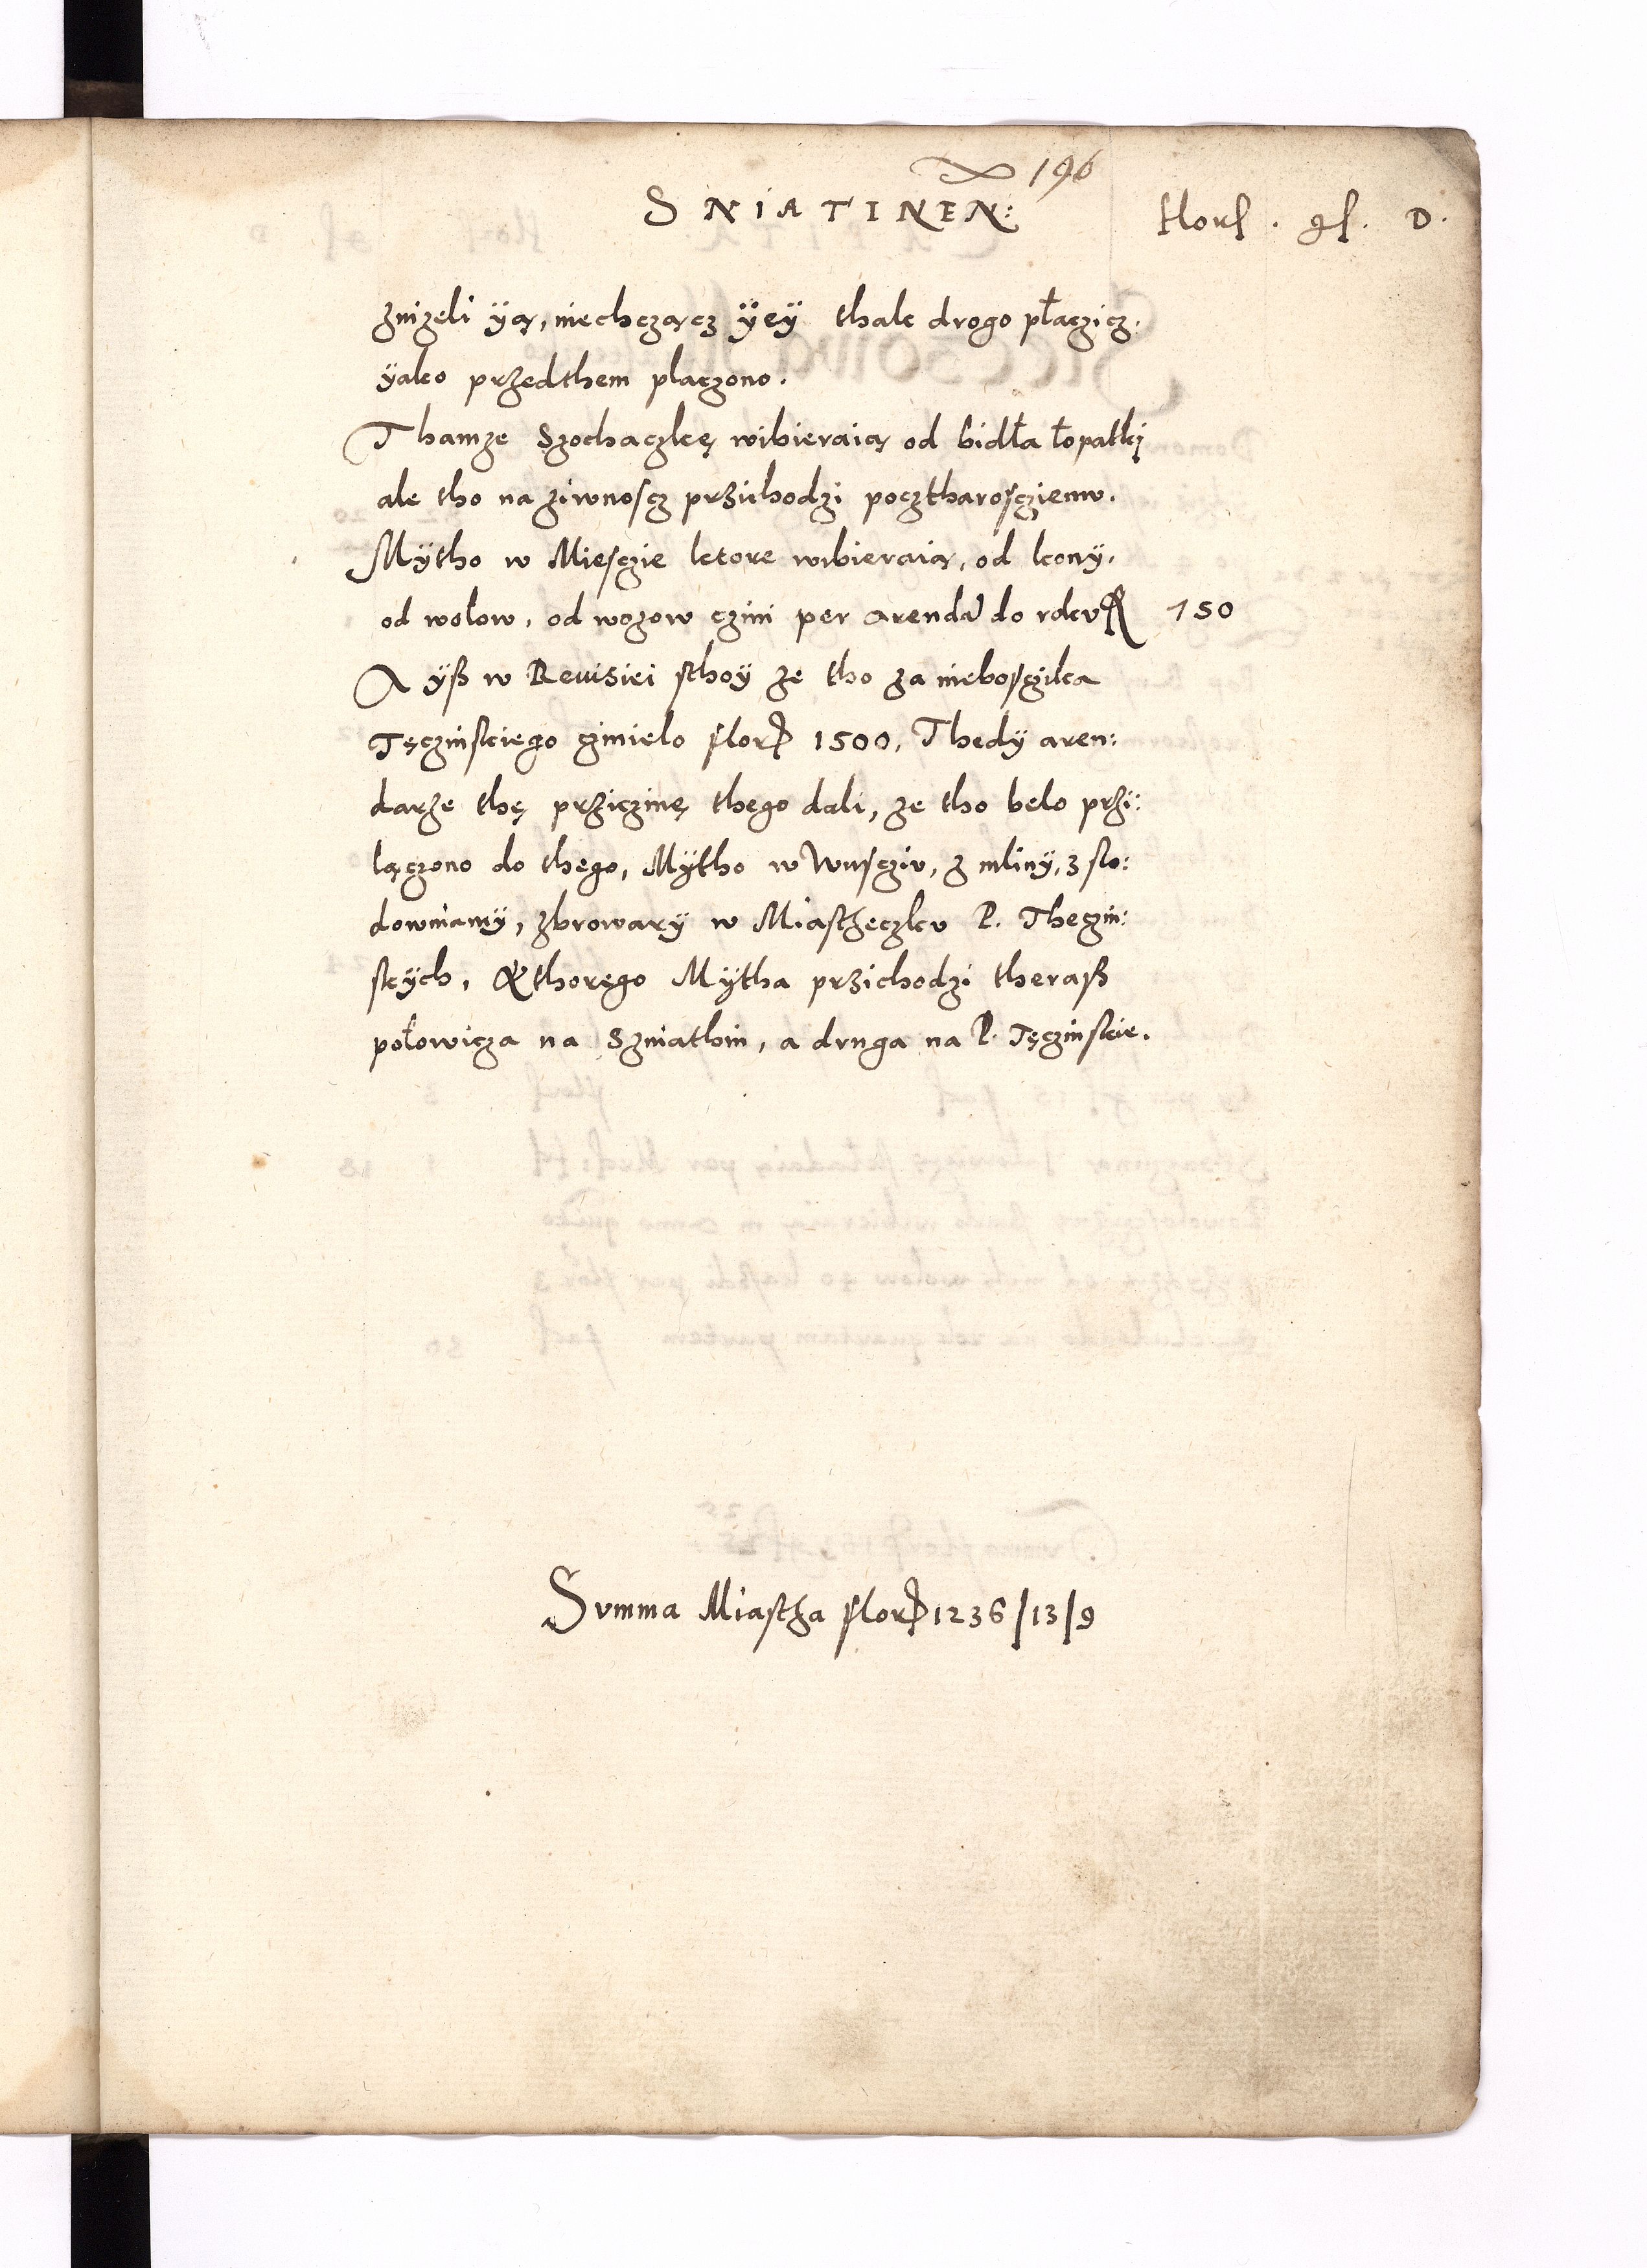 196
SNIATINEN:
flor . gſ . D.
znizeli ÿą, niechcząncz ÿeÿ thak drogo płaczicz.
ÿako przedthem placzono.
Thamze Szochaczkę wibieraią od bidła łopatki
ale tho na ziwnoſcz przichodzi pocztharoſcziemv.
Mÿtho w Mieſczie ktore wibieraią, od konÿ,
od wolow, od wozow czini per arendą do rokv 150
A ÿß w Reuisiei ſthoÿ ze tho za nieboſczika
Tęczinſkiego czinielo flor 1500, Thedÿ aren:
darze thę prziczinę thego dali, ze tho belo przi:
lączono do thego, Mÿtho w Wuſcziv, z mlinÿ, z slo:
downiamÿ, zbrowarÿ w Miaſtheczkv P. Theczin:
ſkÿch, Kthorego Mÿtha przichodzi theraß
połowicza na Szniathin, a druga na P. Tęczinſkie.
Svmma Miaſtha flor 1236/13/9